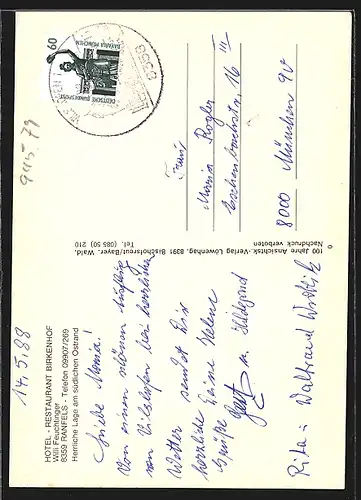 HOTEL - RESTAURANT BIRKENHOF
Willi Feuchtinger
8359 RANFELS - Telefon 09907/269
Herrliche Lage am südlichen Ostrand
14.5.88
Liebe Maria!
Von einem schönen Ausflug
von Vilshofen bei herrlichem
Wetter sendet Dir
herzliche Grüße Helene
Grüße
u. Hildegard
Rita u. Waltraud
100 Jahre Ansichtsk.-Verlag Löwenhag, 8391 Bischofsreut/Bayer. Wald.
Nachdruck verboten Tel. (085 50) 210
60
BAVARIA MÜNCHEN
DEUTSCHE BUNDESPOST
8359
Frau
Maria Rogler
Eschenbachstr. 16 III
8000 München 90